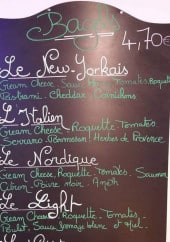 Bagels
4,70€
Le New-Yorkais
Cream Cheese Sauce Tomates, Roquette
Pastrami Cheddar Cornichons
L'Italien
Cream Cheese Roquette Tomates
Serrano Parmesan Herbes de Provence
Le Nordique
Cream Cheese Roquette, Tomates, Saumon
Citron, Poivre noir, Aneth
Le Light
Cream Cheese Roquette, Tomates,
Poulet, Sauce fromage blanc et